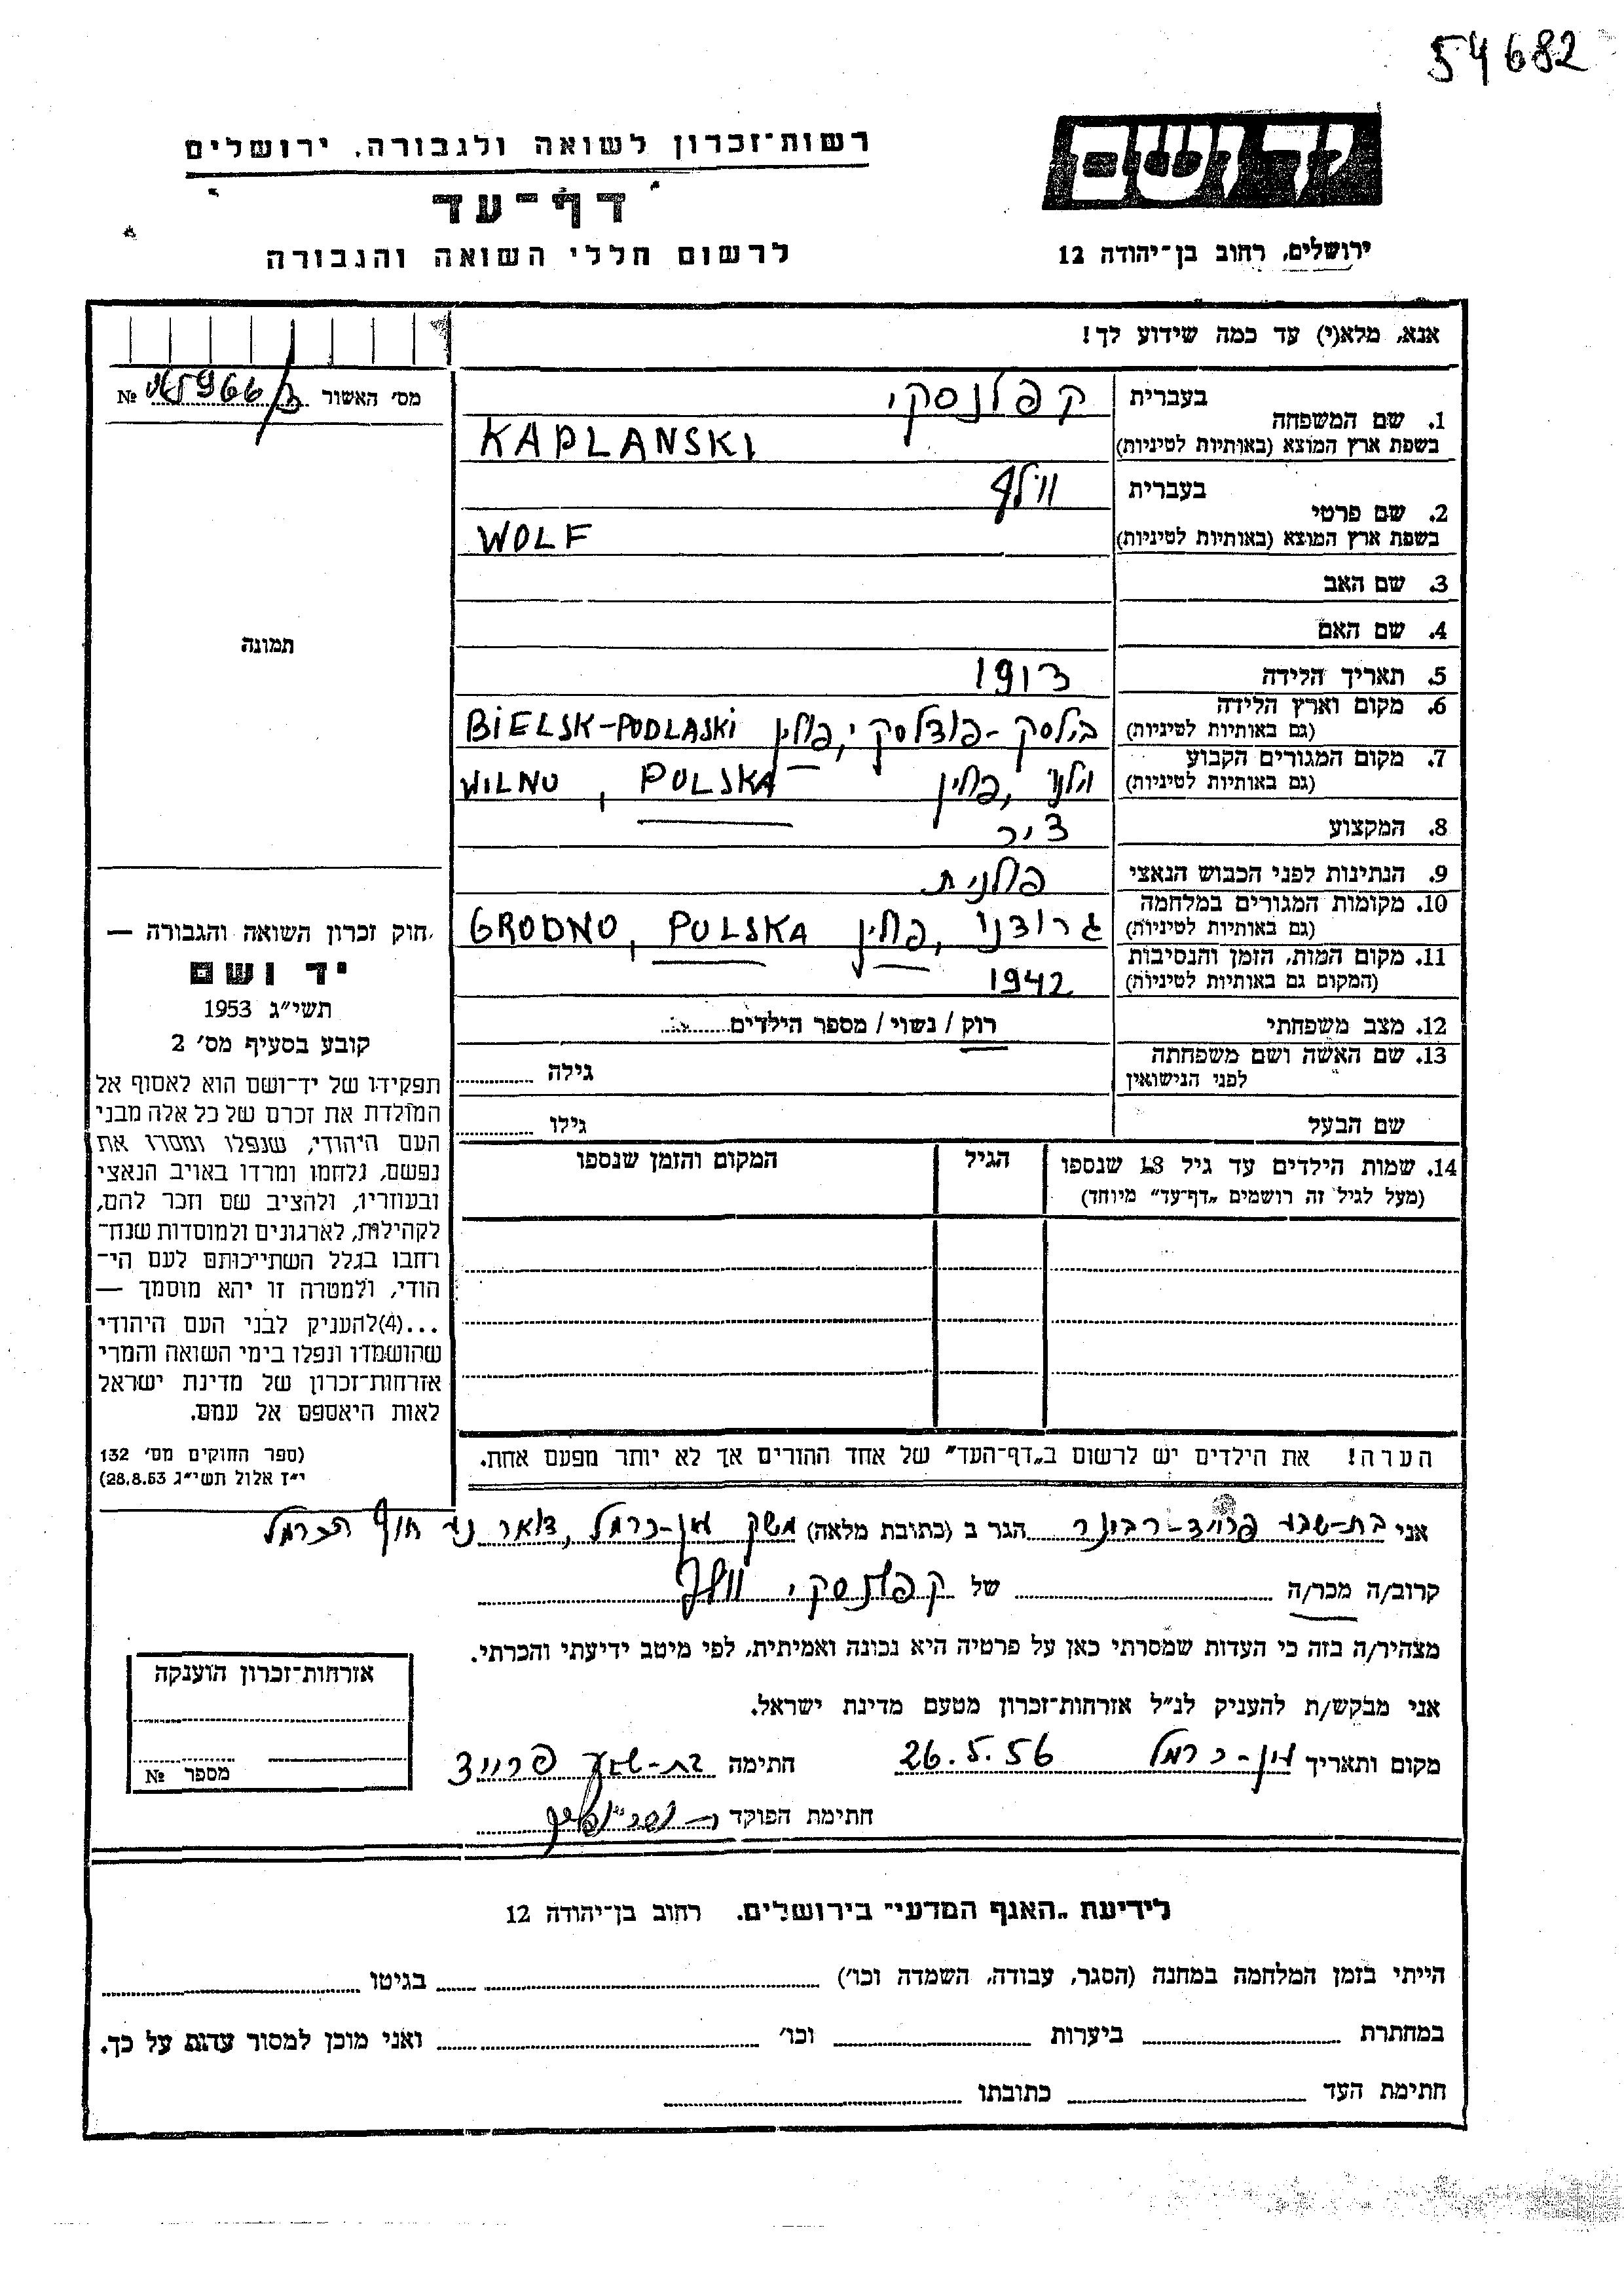 54682
יד ושם
רשות־זכרון לשואה ולגבורה, ירושלים
דף־עד
לרשום חללי השואה והגבורה
ירושלים, רחוב בן־יהודה 12
אנא, מלא(י) עד כמה שידוע לך!
מס׳ האשור №
1. שם המשפחה בעברית קפלנסקי
בשפת ארץ המוצא (באותיות לטיניות) KAPLANSKI
2. שם פרטי בעברית וולף
בשפת ארץ המוצא (באותיות לטיניות) WOLF
3. שם האב
4. שם האם
5. תאריך הלידה 1913
6. מקום וארץ הלידה (גם באותיות לטיניות) בילסק-פודלסקי, פולין BIELSK-PODLASKI
7. מקום המגורים הקבוע (גם באותיות לטיניות) וילנו, פולין WILNO, POLSKA
8. המקצוע ציר
9. הנתינות לפני הכבוש הנאצי פולנית
10. מקומות המגורים במלחמה (גם באותיות לטיניות) גרודנו, פולין GRODNO, POLSKA
11. מקום המות, הזמן והנסיבות (המקום גם באותיות לטיניות) 1942
12. מצב משפחתי רוק / נשוי / מספר הילדים
13. שם האשה ושם משפחתה לפני הנישואין גילה
שם הבעל גילו
14. שמות הילדים עד גיל 18 שנספו הגיל המקום והזמן שנספו
(מעל לגיל זה רושמים „דף־עד” מיוחד)
הערה! את הילדים יש לרשום ב„דף־העד” של אחד ההורים אך לא יותר מפעם אחת.
תמונה
חוק זכרון השואה והגבורה —
יד ושם
תשי״ג 1953
קובע בסעיף מס׳ 2
תפקידו של יד־ושם הוא לאסוף אל
המולדת את זכרם של כל אלה מבני
העם היהודי, שנפלו ומסרו את
נפשם, נלחמו ומרדו באויב הנאצי
ובעוזריו, ולהציב שם וזכר להם,
לקהילות, לארגונים ולמוסדות שנח־
רחבו בגלל השתייכותם לעם הי־
הודי, ולמטרה זו יהא מוסמך —
...(4)להעניק לבני העם היהודי
שהושמדו ונפלו בימי השואה והמרי
אזרחות־זכרון של מדינת ישראל
לאות היאספם אל עמם.
(ספר החוקים מס׳ 132
י״ז אלול תשי״ג 28.8.53)
אני בת-שבע פרויד-רבינר הגר ב (כתובת מלאה) משק עין-כרמל, דואר נע חוף הכרמל
קרוב/ה מכר/ה של קפלנסקי וולף
מצהיר/ה בזה כי העדות שמסרתי כאן על פרטיה היא נכונה ואמיתית, לפי מיטב ידיעתי והכרתי.
אני מבקש/ת להעניק לנ״ל אזרחות־זכרון מטעם מדינת ישראל.
מקום ותאריך עין-כרמל 26.5.56 חתימה בת-שבע פרויד
חתימת הפוקד
אזרחות־זכרון הוענקה
מספר №
לידיעת „האגף המדעי” בירושלים. רחוב בן־יהודה 12
הייתי בזמן המלחמה במחנה (הסגר, עבודה, השמדה וכו׳) בגיטו
במחתרת ביערות וכו׳ ואני מוכן למסור עדות על כך.
חתימת העד כתובתו